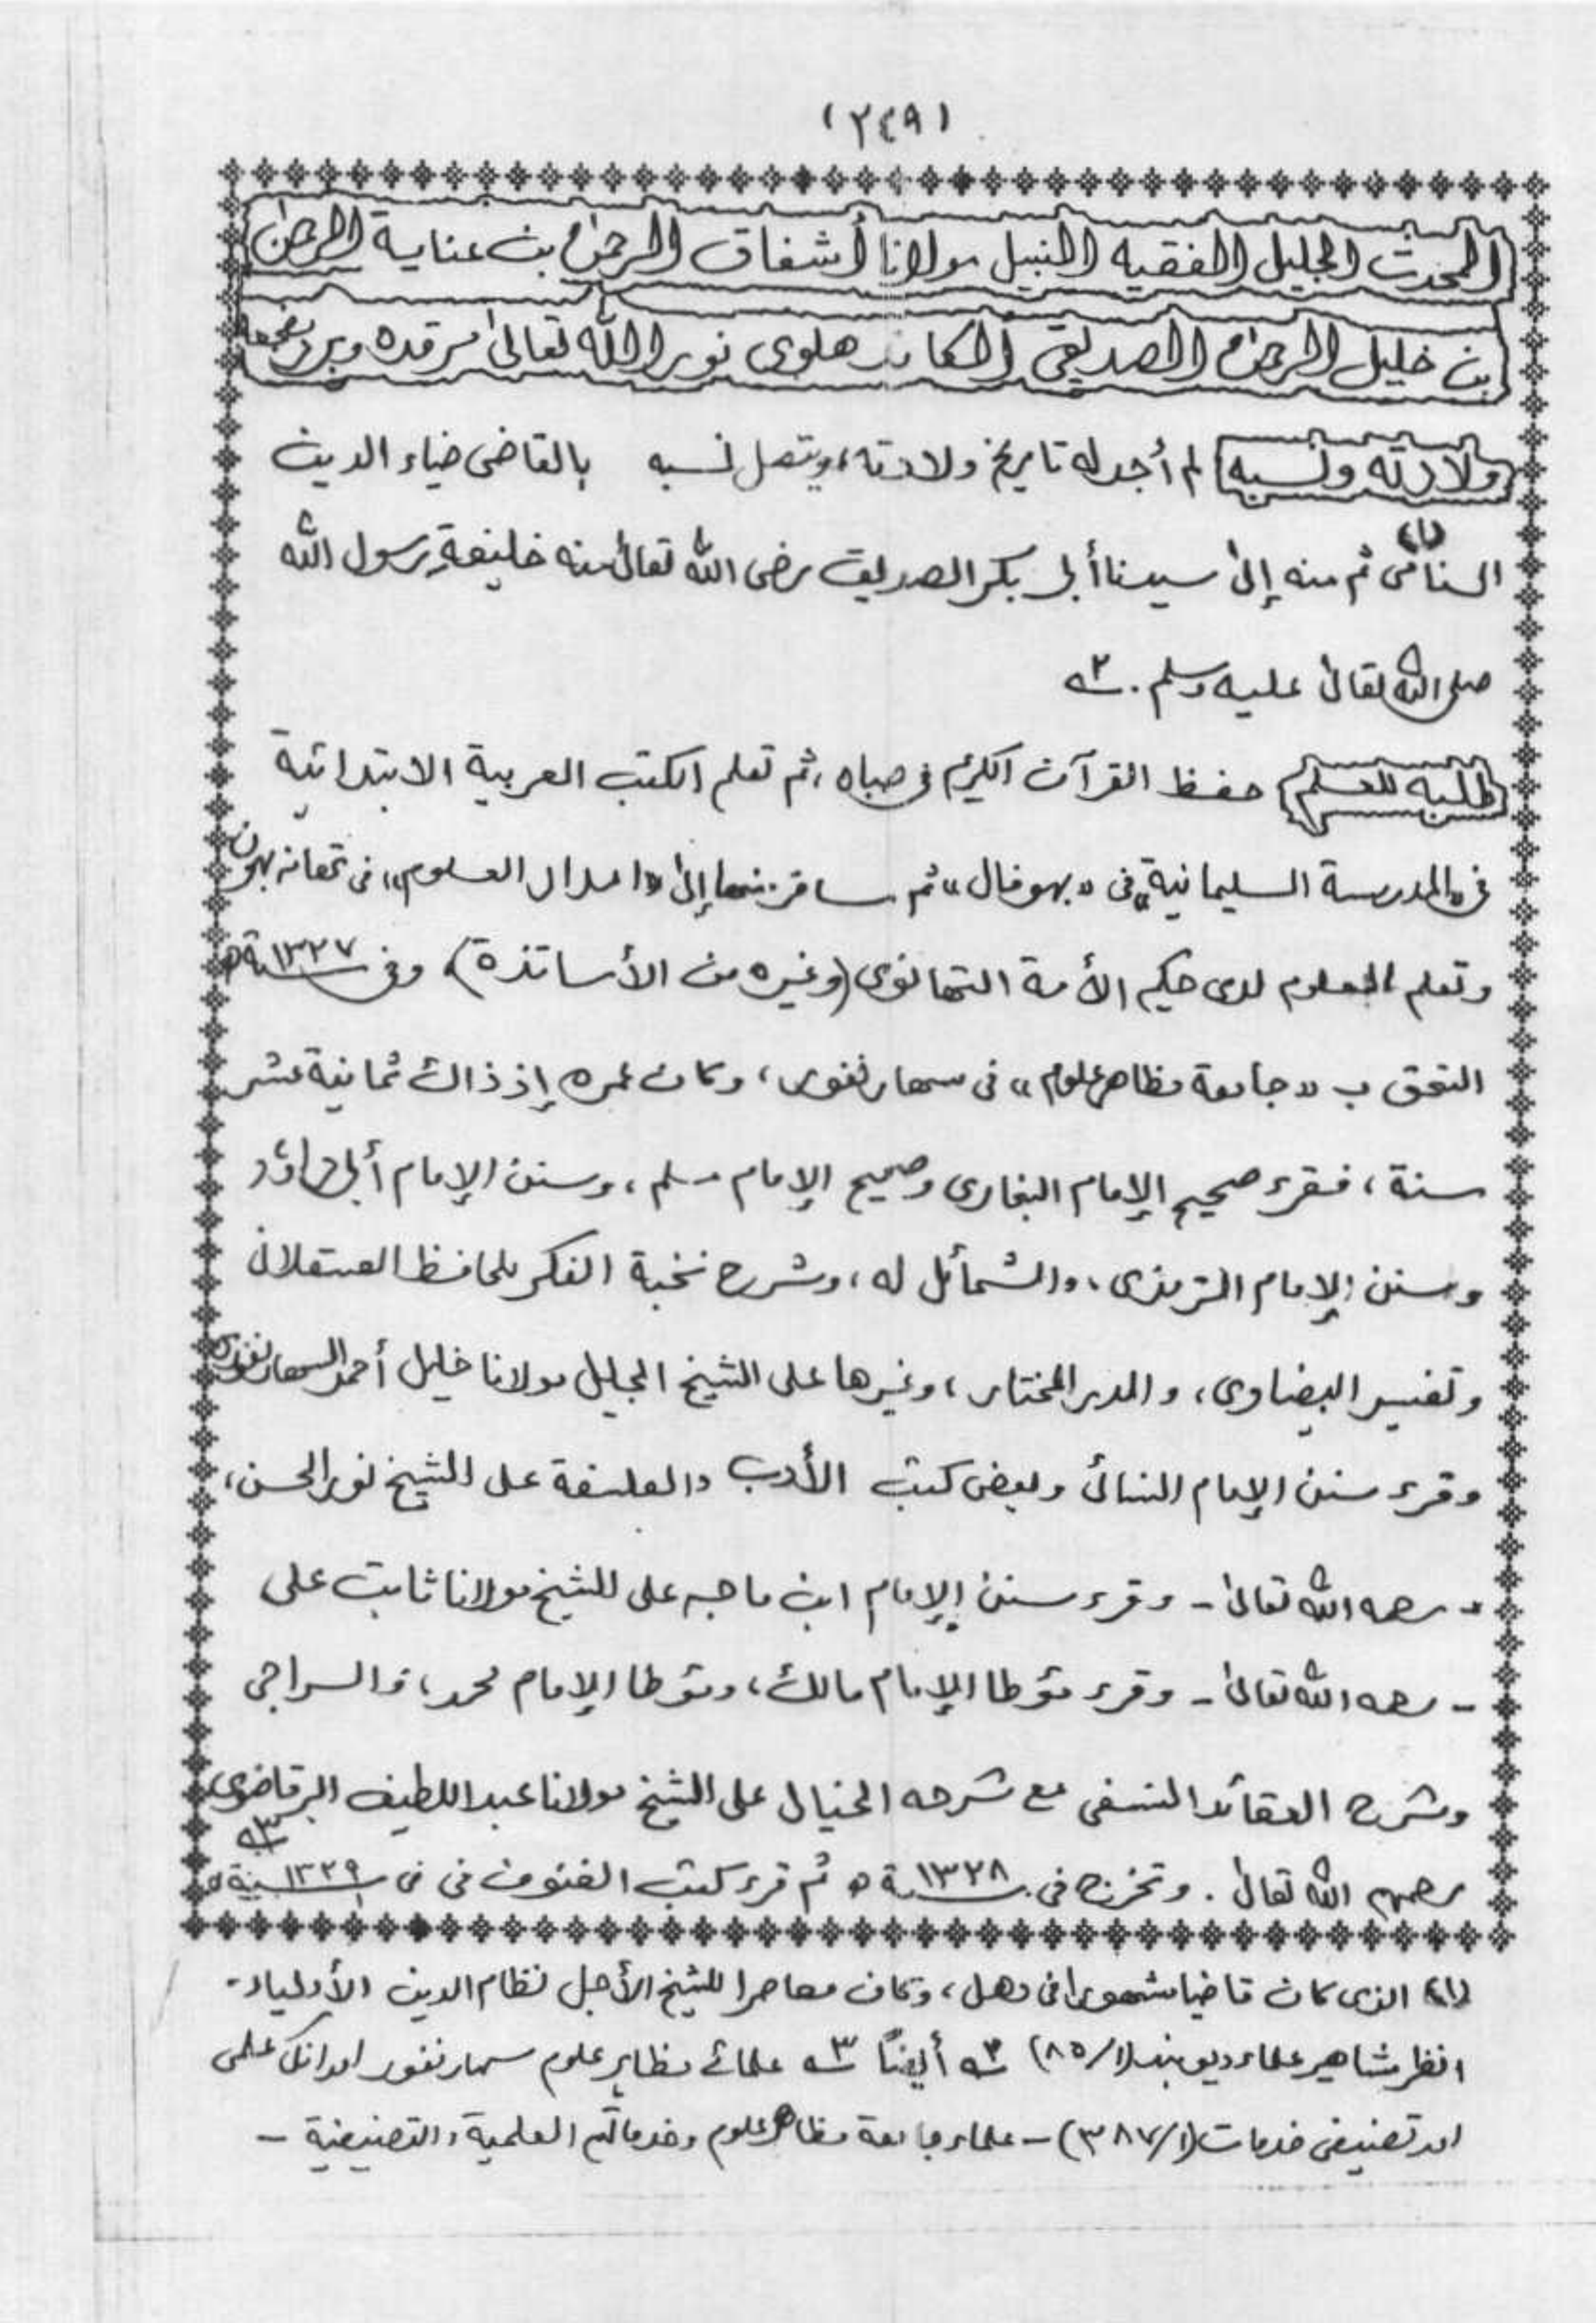 (٢٤٩)
المحدث الجليل الفقيه النبيل مولانا أشفاق الرحمن بن عناية الرحمن
بن خليل الرحمن الصديقي الكاندهلوى نور الله تعالىٰ مرقده وبرد مضجعه
ولادته ونسبه لم أجد له تاريخ ولادته، ويتصل نسبه بالقاضى ضياء الدين
السنامى (١) ثم منه إلىٰ سيدنا أبى بكر الصديق رضى الله تعالىٰ عنه خليفةِ رسول الله
صلى الله تعالىٰ عليه وسلم. ٢ـه
طلبه للعلم حفظ القرآن الكريم فى صباه، ثم تعلم الكتب العربية الابتدائية
فى «المدرسة السليمانية» فى «بهوفال» ثم سافر منها إلىٰ «امداد العلوم» فى تهانه بهون
وتعلم العلوم لدى حكيم الأمة التهانوى (وغيره من الأساتذة) وفى سنة ١٣٢٧ه
التحق ب «جامعة مظاهر علوم» فى سهارنفور، وكان عمره إذ ذاك ثمانية عشر
سنة، فقرء صحيح الإمام البخارى وصحيح الإمام مسلم، وسنن الإمام أبى داؤد
وسنن الإمام الترمذى، والشمائل له، وشرح نخبة الفكر للحافظ العسقلانى
وتفسير البيضاوى، والدر المختار، وغيرها على الشيخ الجليل مولانا خليل أحمد السهارنفورى
وقرء سنن الإمام النسائى وبعض كتب الأدب والفلسفة على الشيخ نور الحسن،
- رحمه الله تعالىٰ - وقرء سنن الإمام ابن ماجه على الشيخ مولانا ثابت على
- رحمه الله تعالىٰ - وقرء مؤطا الإمام مالك، ومؤطا الإمام محمد، والسراجى
وشرح العقائد النسفى مع شرحه الخيالى على الشيخ مولانا عبد اللطيف البرقاضوى
رحمهم الله تعالىٰ. وتخرج فى سنة ١٣٢٨ه ثم قرء كتب الفنون فى فى سنة ١٣٢٩ه ٣ـه
(١) الذى كان قاضيا مشهورا فى دهلى، وكان معاصرا للشيخ الأجل نظام الدين الأولياء-
انظر مشاهير علماء ديوبند (١/ ٨٥) ٢ـه أيضًا ٣ـه علمائے مظاہر علوم سہارنفور اور انکی علمى
اور تصنيفى خدمات (١/ ٣٨٧) - علماء جامعة مظاهر علوم وخدماتهم العلمية والتصنيفية -